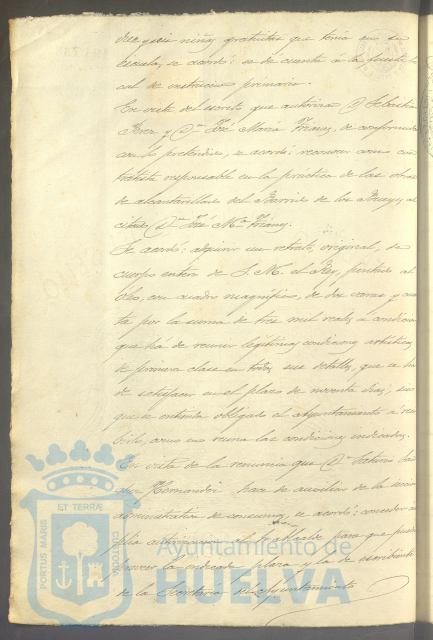 diez y seis niños gratuitos que tenia en su
escuela, se acordó: se de cuenta á la Junta lo
cal de instruccion primaria.
En vista del escrito que autoriza D. Sebastian
y Dn José Maria de conformidad
con lo pretendido, se acordó: reconocer como con
tratista responsable en la práctica de las obras
de alcantarillas del Barrio de los al
citado Dn José Mª
Se acordó: adquirir un retrato, original, de
cuerpo entero de S. M. el Rey, pintado al
óleo, con cuadro magnífico, de dos varas y cuar
ta por la suma de tres mil reales á condicion
que ha de reunir legitimas condiciones artisticas
de primera clase en todos sus detalles, que se ha
de satisfacer en el plazo de noventa dias, sin
que se entienda obligado el Ayuntamiento á reci
birlo, como no reuna las condiciones indicadas.
En vista de la renuncia que D.
Hernandez hace de auxiliar de la seccion
administrativa de consumos, se acordó: conceder am
plia autorizacion al Sr. Alcalde para que pueda
proveer la indicada plaza y la de escribiente
de la Secretaria del Ayuntamiento
PORTUS MARIS ET TERRÆ CUSTODIA
Ayuntamiento de
HUELVA